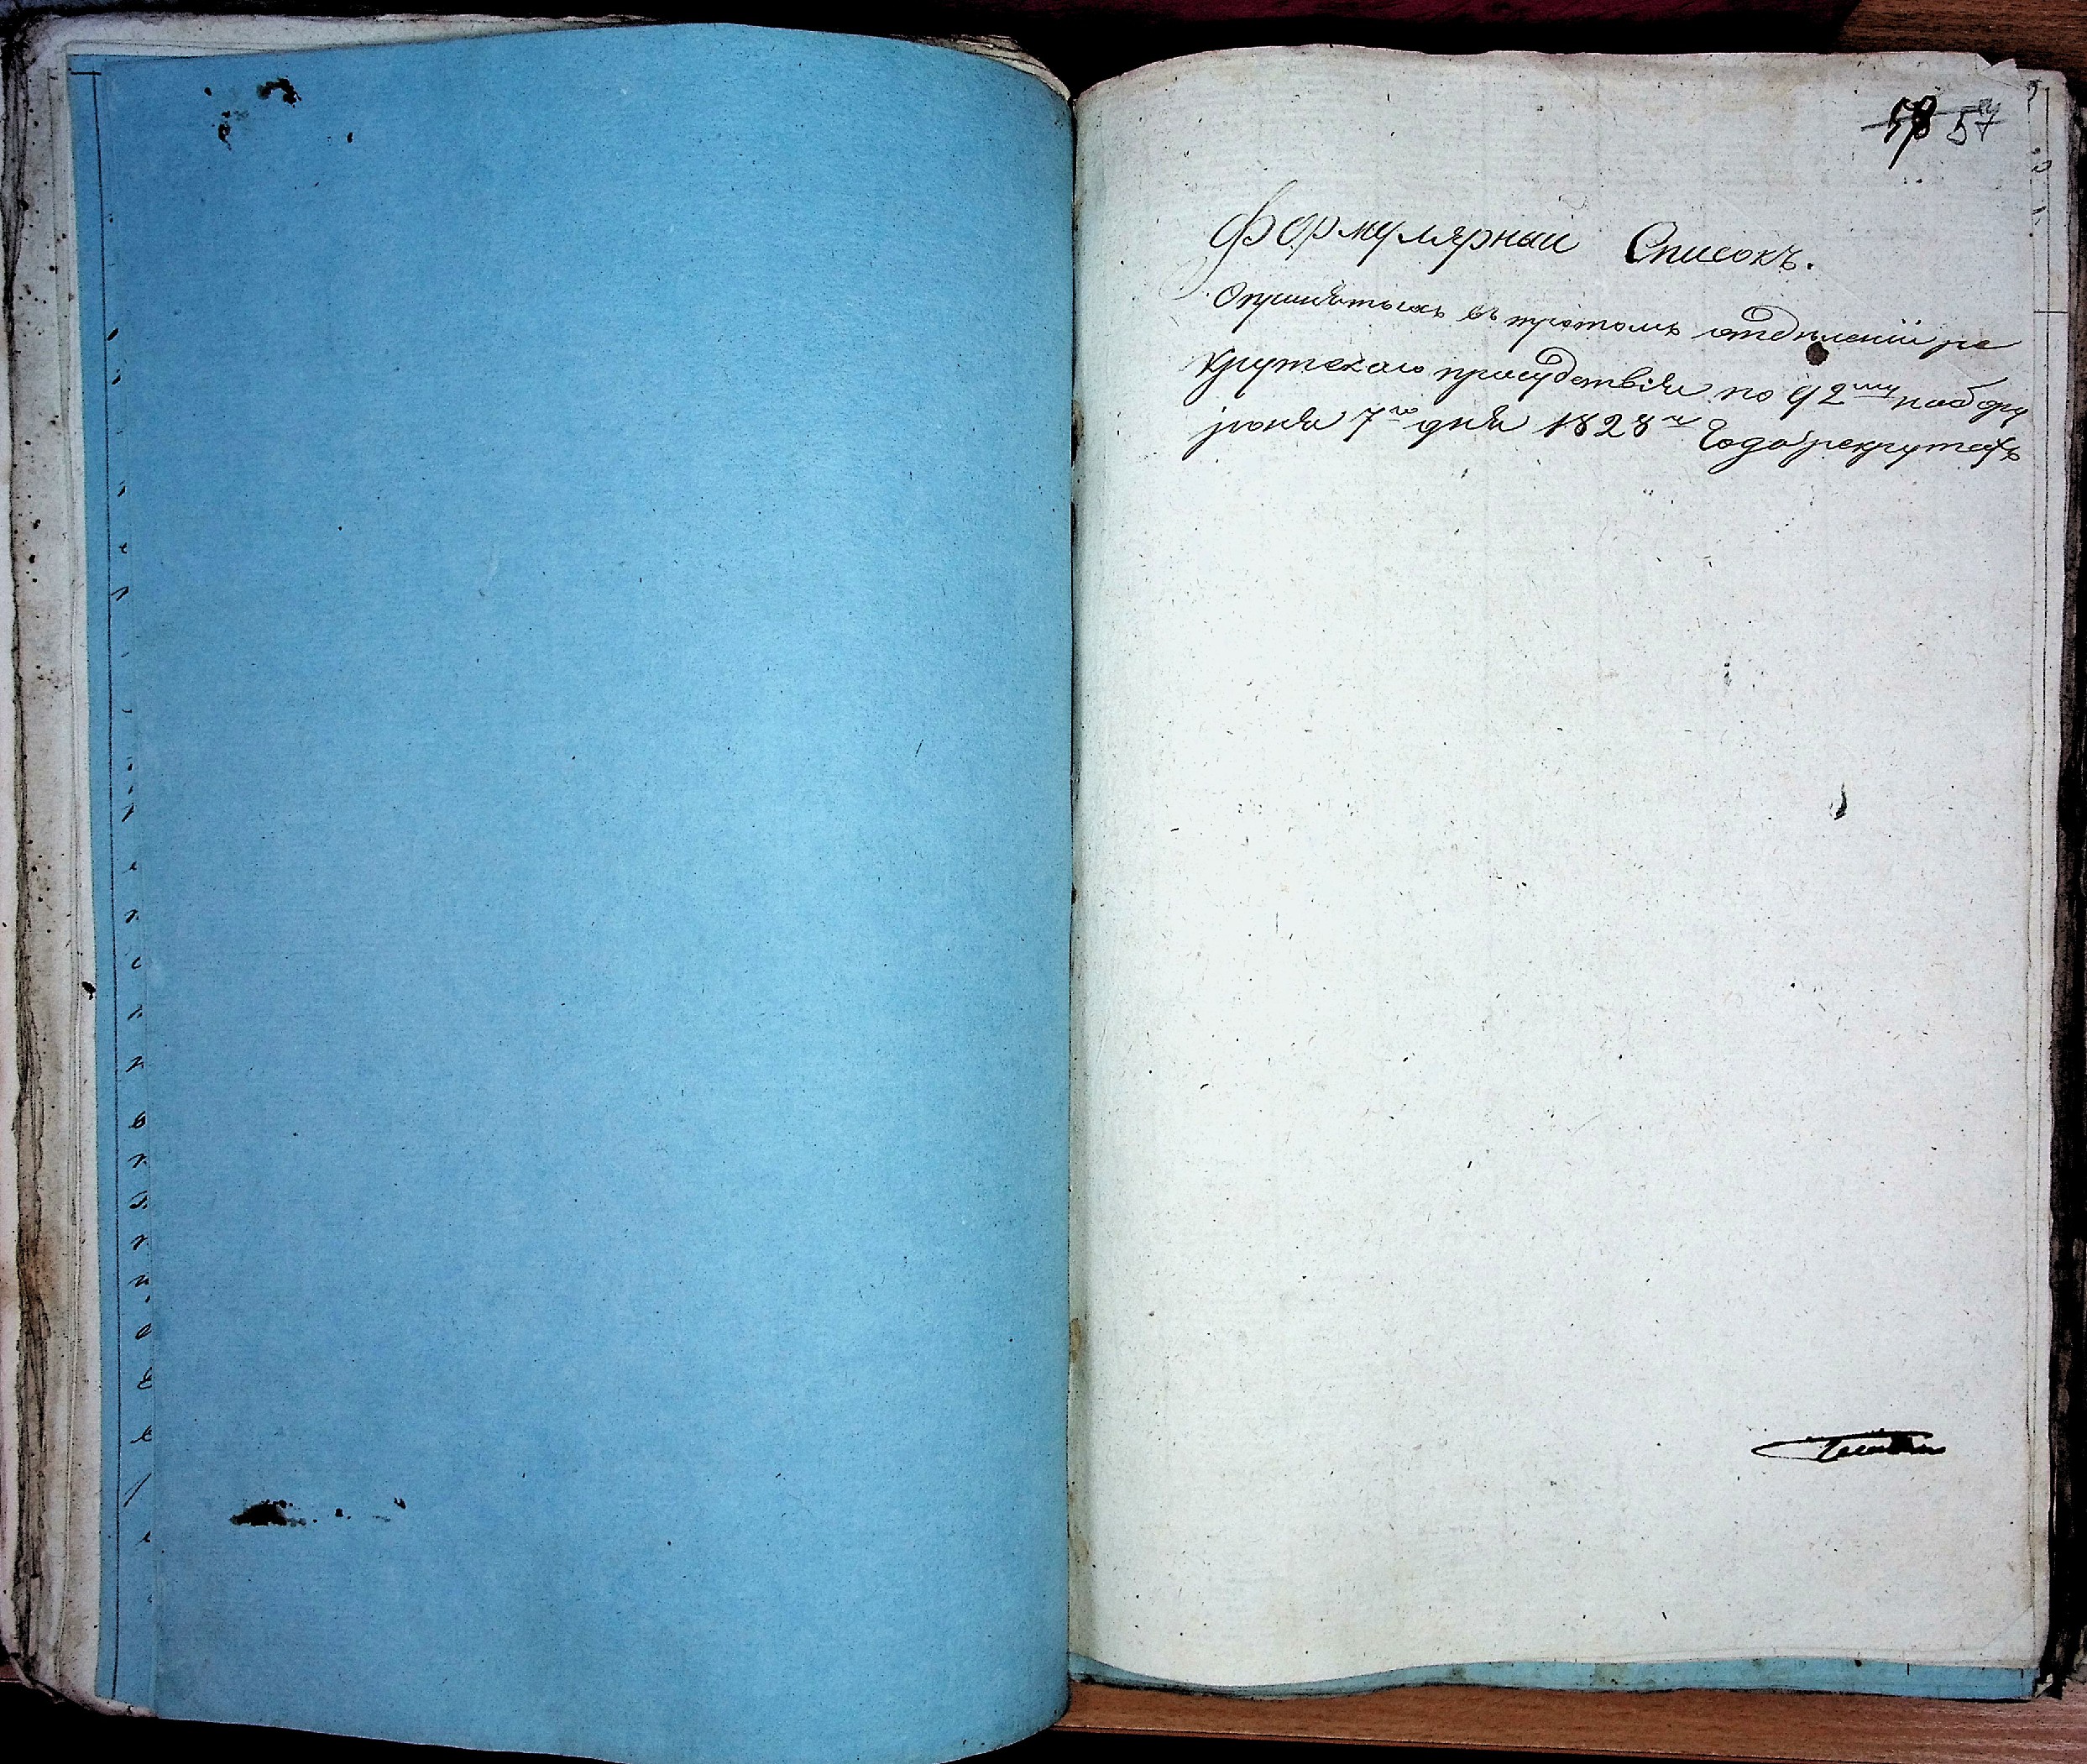 58 57
Формулярный Списокъ.
Опринятыхъ въ третомъ отделении ре
крутскаго присудствия по 92му набору
июня 7го дня 1828го Года рекрутахъ